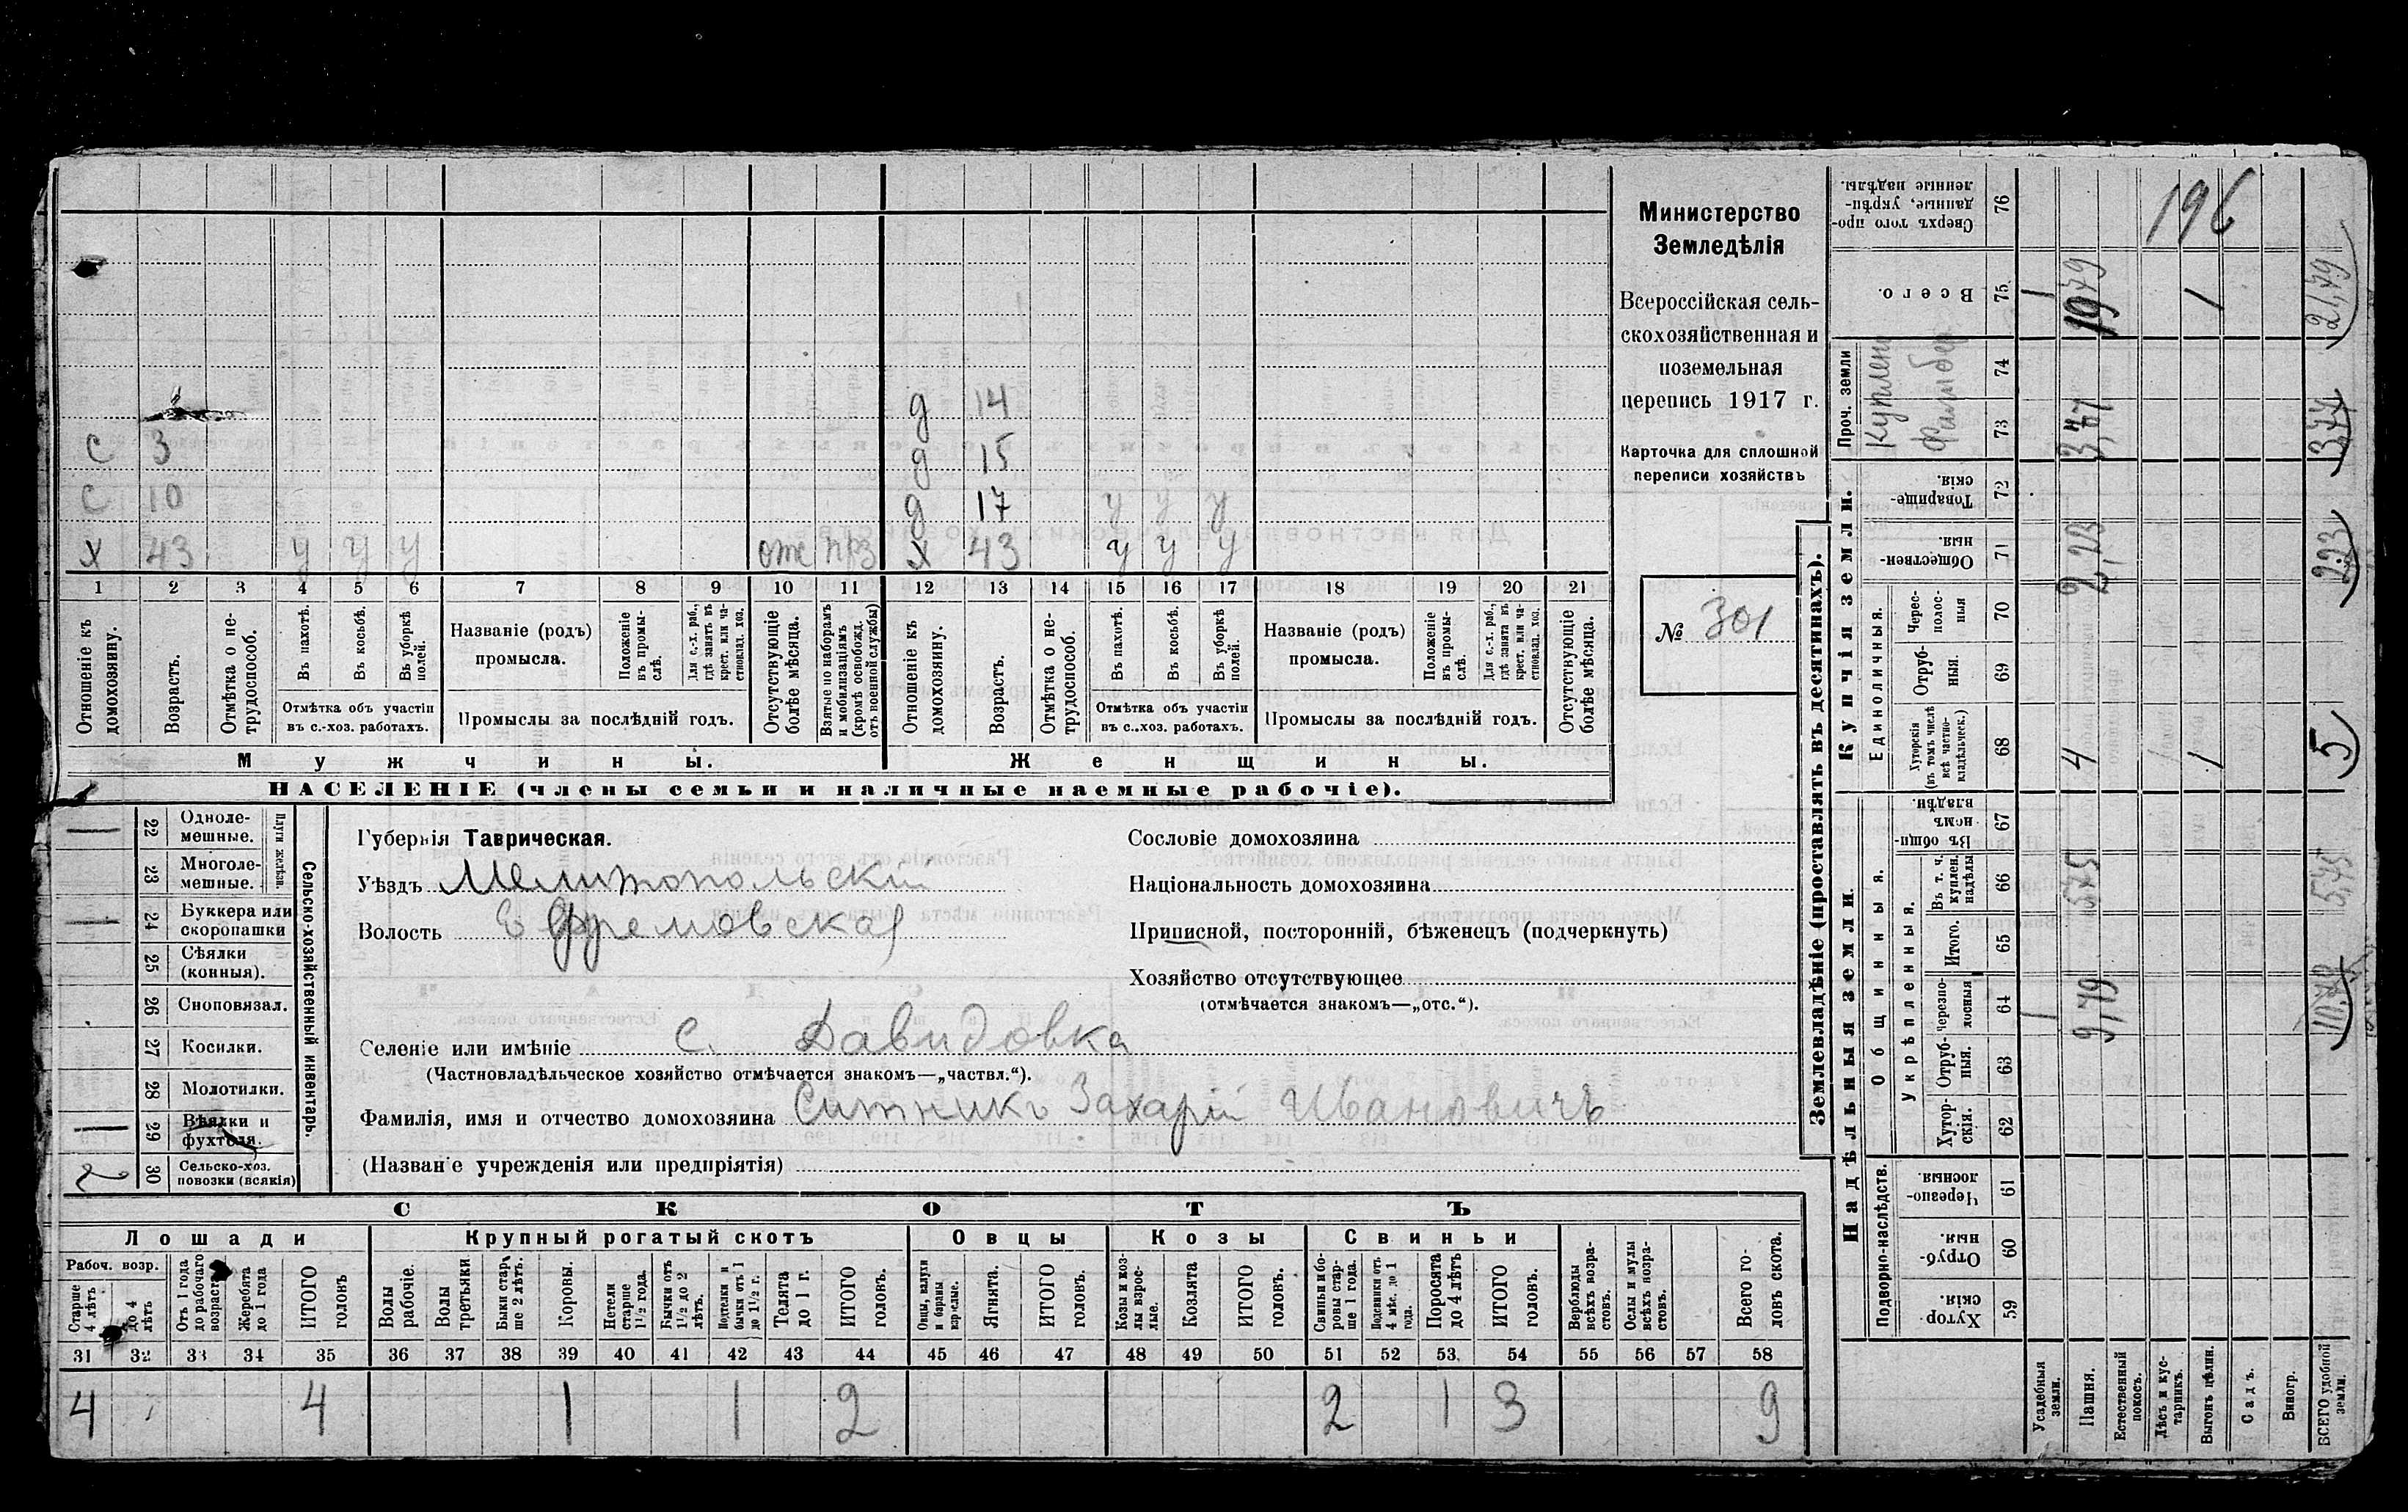 Министерство
Земледѣлія
Всероссійская сель-
скохозяйственная и
поземельная
перепись 1917 г.
Карточка для сплошной
переписи хозяйствъ
№ 301
д 14
С 3 д 15
С 10 д 17 у у у
Х 43 у у у отс прз х 43 у у у
1 2 3 4 5 6 7 8 9 10 11 12 13 14 15 16 17 18 19 20 21
Отношеніе къ домохозяину.
Возрастъ.
Отмѣтка о не-трудоспособ.
Въ пахотѣ.
Въ косьбѣ.
Въ уборкѣ полей.
Отмѣтка объ участіи
въ с.-хоз. работахъ.
Названіе (родъ)
промысла.
Положеніе въ промы-слѣ.
Для с.-х. раб., гдѣ занятъ въ крест. или ча-стновлад. хоз.
Промыслы за послѣдній годъ.
Отсутствующіе болѣе мѣсяца.
Взятые по наборамъ и мобилизаціямъ (кромѣ освобожд. отъ военной службы)
Отношеніе къ домохозяину.
Возрастъ.
Отмѣтка о не-трудоспособ.
Въ пахотѣ.
Въ косьбѣ.
Въ уборкѣ полей.
Отмѣтка объ участіи
въ с.-хоз. работахъ.
Названіе (родъ)
промысла.
Положеніе въ промы-слѣ.
Для с.-х. раб., гдѣ занята въ крест. или ча-стновлад. хоз.
Промыслы за послѣдній годъ.
Отсутствующіе болѣе мѣсяца.
Мужчины. Женщины.
НАСЕЛЕНІЕ (члены семьи и наличные наемные рабочіе).
Сельско-хозяйственный инвентарь.
Плуги желѣзн.
22 Одноле-
мешные.
23 Многоле-
мешные.
24 Буккера или
скоропашки
25 Сѣялки
(конныя).
26 Сноповязал.
27 Косилки.
28 Молотилки.
29 Вѣялки и
фухтеля.
2 30 Сельско-хоз.
повозки (всякія)
Губернія Таврическая.
Уѣздъ Мелитопольскій
Волость Ефремовская
Сословіе домохозяина
Національность домохозяина
Приписной, посторонній, бѣженецъ (подчеркнуть)
Хозяйство отсутствующее
(отмѣчается знакомъ—„отс.“).
Селеніе или имѣніе с. Давидовка
(Частновладѣльческое хозяйство отмѣчается знакомъ—„частвл.“).
Фамилія, имя и отчество домохозяина Ситникъ Захарій Ивановичъ
(Названіе учрежденія или предпріятія)
СКОТЪ
Лошади Крупный рогатый скотъ Овцы Козы Свиньи
Рабоч. возр.
Старше 4 лѣтъ
до 4 лѣтъ
Отъ 1 года до рабочаго возраста
Жеребята до 1 года
ИТОГО головъ
Волы рабочіе.
Волы третьяки
Быки стар-ше 2 лѣтъ.
Коровы.
Нетели старше 1½ года.
Бычки отъ 1½ до 2 лѣтъ.
Подтелки и бычки отъ 1 до 1½ г.
Телята до 1 г.
ИТОГО головъ.
Овцы, валухи и бараны взрослые.
Ягнята.
ИТОГО головъ.
Козы и коз-лы взрос-лые.
Козлята
ИТОГО головъ.
Свиньи и бо-ровы стар-ше 1 года.
Подсвинки отъ 4 мѣс. до 1 года.
Поросята до 4 лѣтъ
ИТОГО головъ.
Верблюды всѣхъ возра-стовъ.
Ослы и мулы всѣхъ возра-стовъ.
Всего го-ловъ скота.
31 32 33 34 35 36 37 38 39 40 41 42 43 44 45 46 47 48 49 50 51 52 53. 54 55 56 57 58
4 4 1 1 2 2 1 3 9
Землевладѣніе (проставлять въ десятинахъ).
Надѣльныя земли.
Купчія земли.
Проч. земли
Подворно-наслѣдств.
Общинныя.
Укрѣпленныя.
Единоличныя.
Хутор-скія 59
Отруб-ныя. 60
Черезпо-лосныя. 61
Хутор-скія. 62
Отруб-ныя. 63
Черезпо-лосныя 64
Итого. 65
Въ т. ч. куплен. надѣлы 66
Въ общи-номъ владѣн. 67
Хуторскія (въ томъ числѣ всѣ частно-владѣльческ.) 68
Отруб-ныя. 69
Черес-полос-ныя 70
Обществен-ныя 71
Товарище-скія. 72
73
74
Всего. 75
Сверхъ того про-данные, укрѣп-ленные надѣлы. 76
196
Усадебныя земли. 1 1
Пашня. 9,79 5,75 4 2,23 3,77 19,79
Естественный покосъ.
Лѣсъ и кус-тарникъ.
Выгонъ цѣлин. 1 1
Садъ.
Виногр.
ВСЕГО удобной земли. 10,79 5,75 5 2,23 3,77 21,79